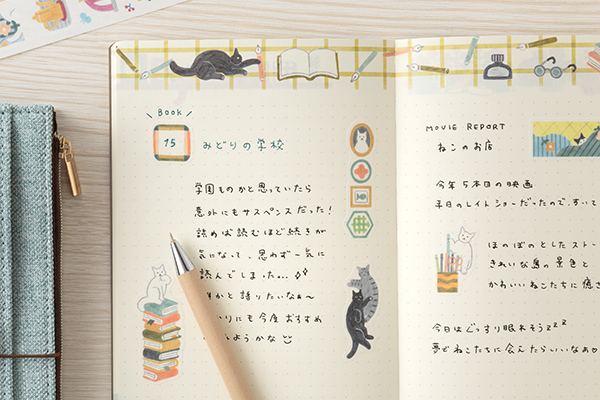 BOOK
15
みどりの学校
学園ものかと思っていたら
意外にもサスペンスだった!
読めば読むほど続きが
気になって、思わず一気に
読んでしまった...
かと語りたいなぁ〜
にも今度おすすめ
ようかな
MOVIE REPORT
ねこのお店
今年5本目の映画
平日のレイトショーだったので、すいて
ほのぼのとしたストー
きれいな島の景色と
かわいいねこたちに癒さ
今日はぐっすり眠れそうzzz
夢でねこたちに会えたらいいなぁ